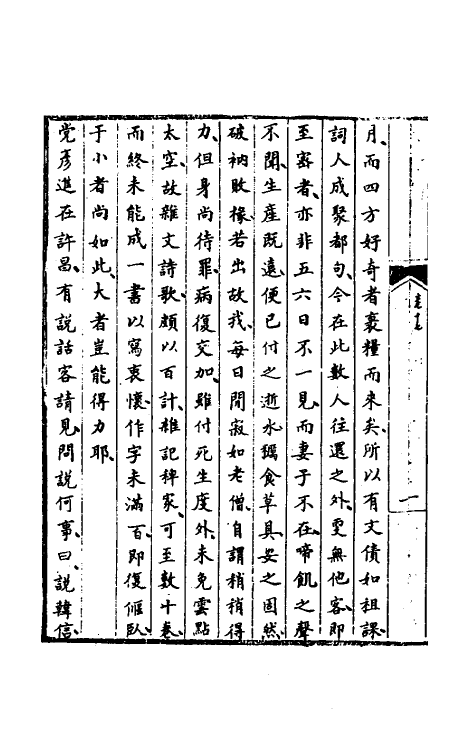 月、而四方好奇者裹糧而來矣、所以有文債如租課、
詞人成聚都句、今在此數人往還之外、更無他客、即
至密者、亦非五六日不一見、而妻子不在、啼飢之聲
不聞、生產既遠、便已付之逝水、糲食草具、安之固然、
破衲敗椽、若出故我、每日閒寂如老僧、自謂稍稍得
力、但身尚待罪、病復交加、雖付死生度外、未免雲點
太空、故雜文詩歌、頗以百計、雜記稗家、可至數十卷、
而終未能成一書以寫衷懷、作字未滿百、即復偃臥、
于小者尚如此、大者豈能得力耶、
党彥進在許昌、有說話客請見、問說何事、曰、說韓信、
一